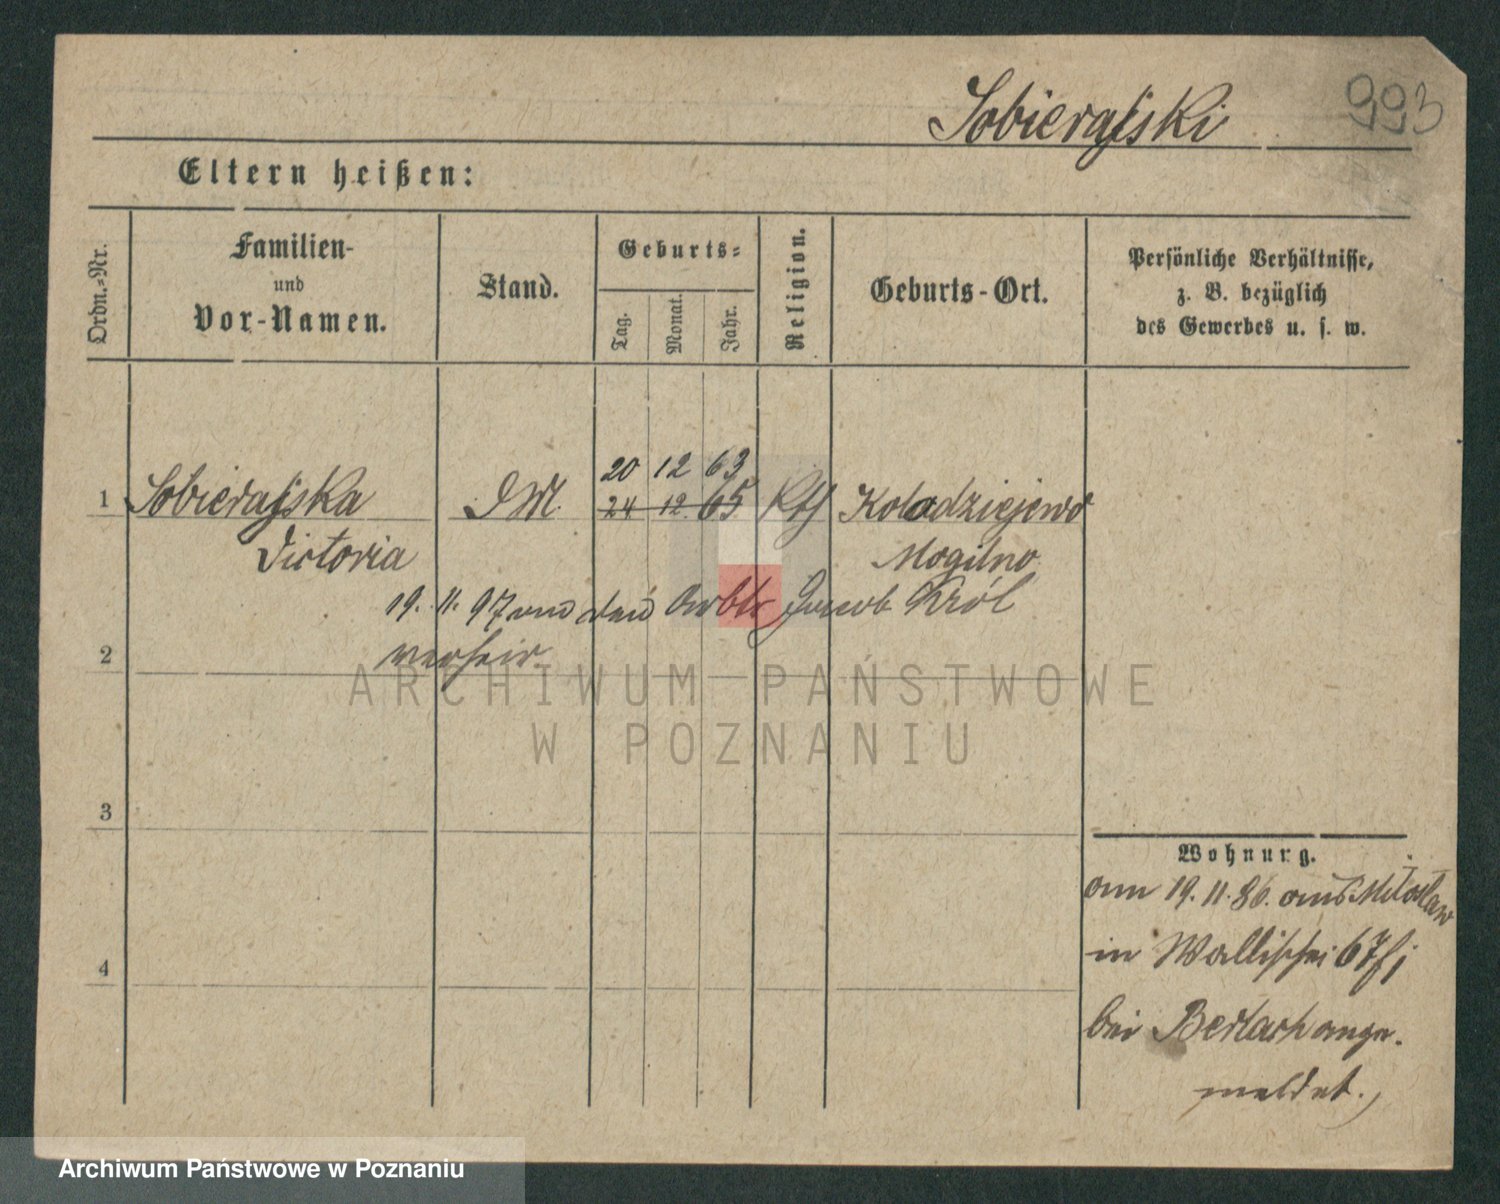 993
Sobierajski
Eltern heißen:
Ordn.-Nr.
Familien-
und
Vor-Namen.
Stand.
Geburts-
Tag.
Monat.
Jahr.
Religion.
Geburts-Ort.
Persönliche Verhältnisse,
z. B. bezüglich
des Gewerbes u. s. w.
20 12 63
1 Sobierajska DM. 24 12. 65 Kth Kolodziejewo
Victoria Mogilno
19. 11. 97 an den Arbtr Jacob Król
2 verheir.
ARCHIWUM PAŃSTWOWE
W POZNANIU
3
Wohnung.
am 19. 11. 86. aus Miloslaw
4 in Wallischei 67
bei Berlach ange-
meldet.
Archiwum Państwowe w Poznaniu